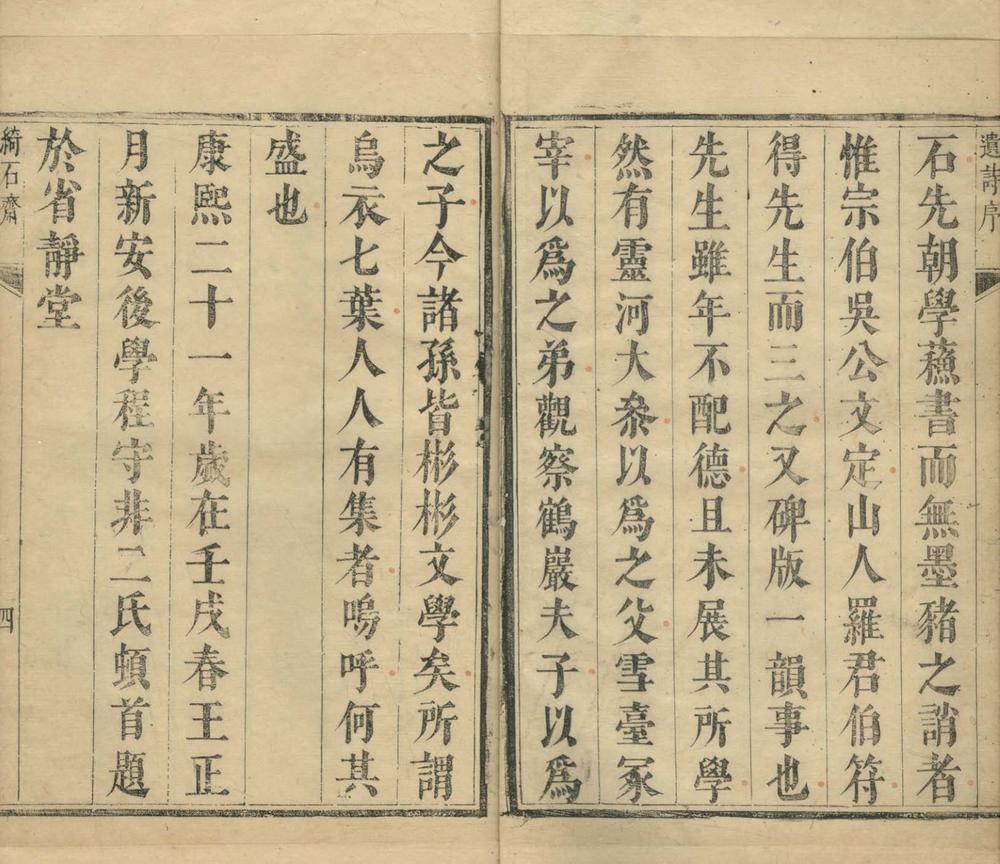 遺詩序
石先朝學蘓書而無墨豬之誚者
惟宗伯吳公文定山人羅君伯符
得先生而三之又碑版一韻事也
先生雖年不配德且未展其所學
然有靈河大叅以爲之父雪臺冢
宰以爲之弟觀察鶴巖夫子以爲
之子今諸孫皆彬彬文學矣所謂
烏衣七葉人人有集者嗚呼何其
盛也
康熙二十一年歲在壬戌春王正
月新安後學程守非二氏頓首題
於省靜堂
綺石齋
四